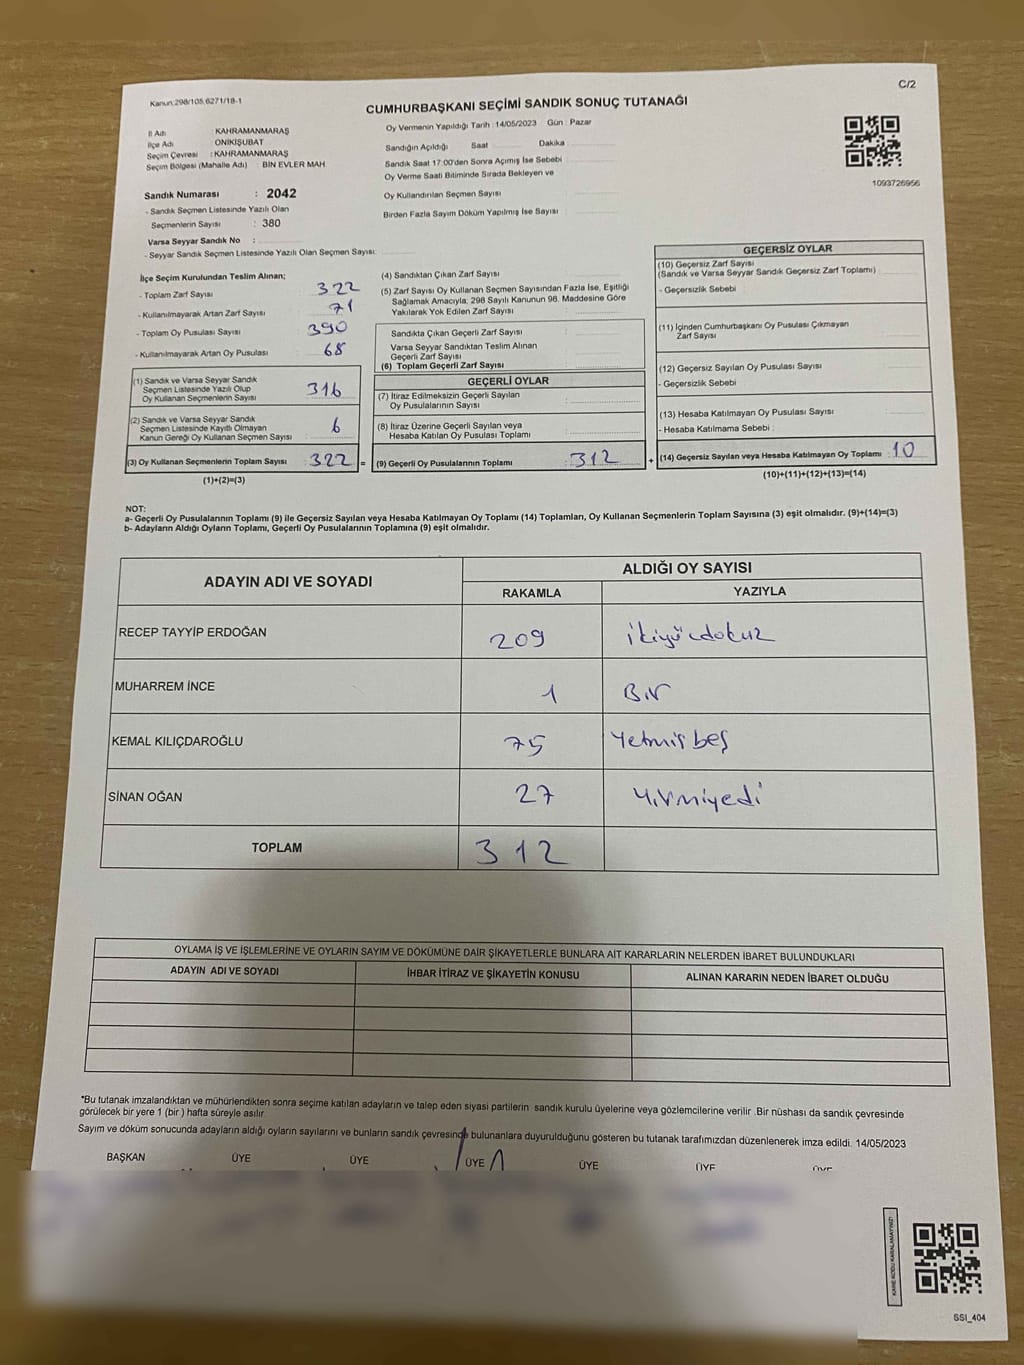 C/2
Kanun:298/105,6271/18-1
CUMHURBAŞKANI SEÇİMİ SANDIK SONUÇ TUTANAĞI
İl Adı : KAHRAMANMARAŞ
İlçe Adı : ONİKİŞUBAT
Seçim Çevresi : KAHRAMANMARAŞ
Seçim Bölgesi (Mahalle Adı) : BİN EVLER MAH.
Sandık Numarası : 2042
- Sandık Seçmen Listesinde Yazılı Olan
Seçmenlerin Sayısı : 380
Varsa Seyyar Sandık No :
- Seyyar Sandık Seçmen Listesinde Yazılı Olan Seçmen Sayısı:
Oy Vermenin Yapıldığı Tarih : 14/05/2023 Gün : Pazar
Sandığın Açıldığı Saat Dakika
Sandık Saat 17:00'den Sonra Açımış İse Sebebi
Oy Verme Saati Bitiminde Sırada Bekleyen ve
Oy Kullandırılan Seçmen Sayısı
Birden Fazla Sayım Döküm Yapılmış İse Sayısı
1093726956
İlçe Seçim Kurulundan Teslim Alınan;
- Toplam Zarf Sayısı 322
- Kullanılmayarak Artan Zarf Sayısı 71
- Toplam Oy Pusulası Sayısı 390
- Kullanılmayarak Artan Oy Pusulası 68
(1) Sandık ve Varsa Seyyar Sandık
Seçmen Listesinde Yazılı Olup
Oy Kullanan Seçmenlerin Sayısı 316
(2) Sandık ve Varsa Seyyar Sandık
Seçmen Listesinde Kayıtlı Olmayan
Kanun Gereği Oy Kullanan Seçmen Sayısı 6
(3) Oy Kullanan Seçmenlerin Toplam Sayısı 322 =
(1)+(2)=(3)
(4) Sandıktan Çıkan Zarf Sayısı
(5) Zarf Sayısı Oy Kullanan Seçmen Sayısından Fazla İse, Eşitliği
Sağlamak Amacıyla; 298 Sayılı Kanunun 98. Maddesine Göre
Yakılarak Yok Edilen Zarf Sayısı
Sandıkta Çıkan Geçerli Zarf Sayısı
Varsa Seyyar Sandıktan Teslim Alınan
Geçerli Zarf Sayısı
(6) Toplam Geçerli Zarf Sayısı
GEÇERLİ OYLAR
(7) İtiraz Edilmeksizin Geçerli Sayılan
Oy Pusulalarının Sayısı
(8) İtiraz Üzerine Geçerli Sayılan veya
Hesaba Katılan Oy Pusulası Toplamı
(9) Geçerli Oy Pusulalarının Toplamı : 312 +
GEÇERSİZ OYLAR
(10) Geçersiz Zarf Sayısı
(Sandık ve Varsa Seyyar Sandık Geçersiz Zarf Toplamı)
- Geçersizlik Sebebi
(11) İçinden Cumhurbaşkanı Oy Pusulası Çıkmayan
Zarf Sayısı
(12) Geçersiz Sayılan Oy Pusulası Sayısı
- Geçersizlik Sebebi
(13) Hesaba Katılmayan Oy Pusulası Sayısı
- Hesaba Katılmama Sebebi :
(14) Geçersiz Sayılan veya Hesaba Katılmayan Oy Toplamı : 10
(10)+(11)+(12)+(13)=(14)
NOT:
a- Geçerli Oy Pusulalarının Toplamı (9) ile Geçersiz Sayılan veya Hesaba Katılmayan Oy Toplamı (14) Toplamları, Oy Kullanan Seçmenlerin Toplam Sayısına (3) eşit olmalıdır. (9)+(14)=(3)
b- Adayların Aldığı Oyların Toplamı, Geçerli Oy Pusulalarının Toplamına (9) eşit olmalıdır.
ADAYIN ADI VE SOYADI ALDIĞI OY SAYISI
RAKAMLA YAZIYLA
RECEP TAYYİP ERDOĞAN 209 ikiyüzdokuz
MUHARREM İNCE 1 Bir
KEMAL KILIÇDAROĞLU 75 Yetmiş beş
SİNAN OĞAN 27 Yirmiyedi
TOPLAM 312
OYLAMA İŞ VE İŞLEMLERİNE VE OYLARIN SAYIM VE DÖKÜMÜNE DAİR ŞİKAYETLERLE BUNLARA AİT KARARLARIN NELERDEN İBARET BULUNDUKLARI
ADAYIN ADI VE SOYADI İHBAR İTİRAZ VE ŞİKAYETİN KONUSU ALINAN KARARIN NEDEN İBARET OLDUĞU
*Bu tutanak imzalandıktan ve mühürlendikten sonra seçime katılan adayların ve talep eden siyasi partilerin sandık kurulu üyelerine veya gözlemcilerine verilir .Bir nüshası da sandık çevresinde
görülecek bir yere 1 (bir ) hafta süreyle asılır.
Sayım ve döküm sonucunda adayların aldığı oyların sayılarını ve bunların sandık çevresinde bulunanlara duyurulduğunu gösteren bu tutanak tarafımızdan düzenlenerek imza edildi. 14/05/2023
BAŞKAN ÜYE ÜYE ÜYE ÜYE ÜYE ÜYE
KARE KODU KARALAMAYINIZ!
SSI_404